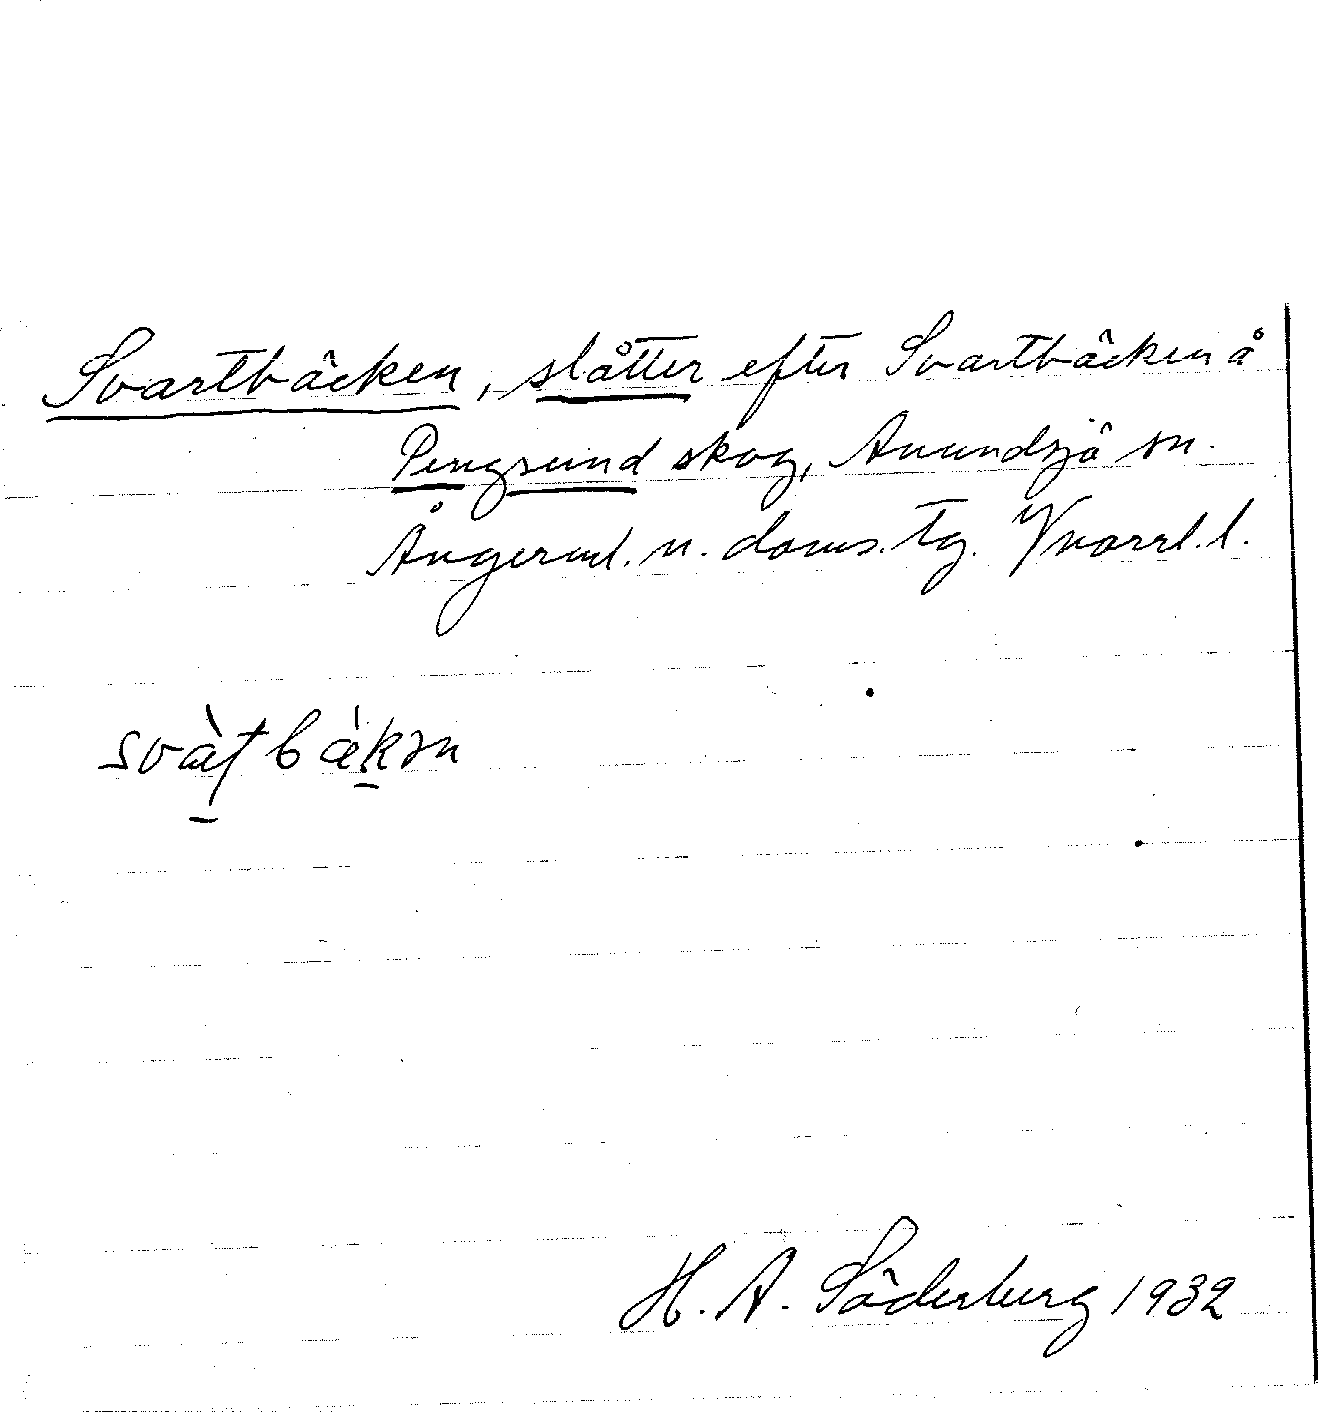 Svartbäcken, slåtter efter Svartbäcken å
Pengsund skog, Anundsjö sn.
Ångerml. n. doms. tg. Vnorrl. l.
H. A. Söderberg 1932